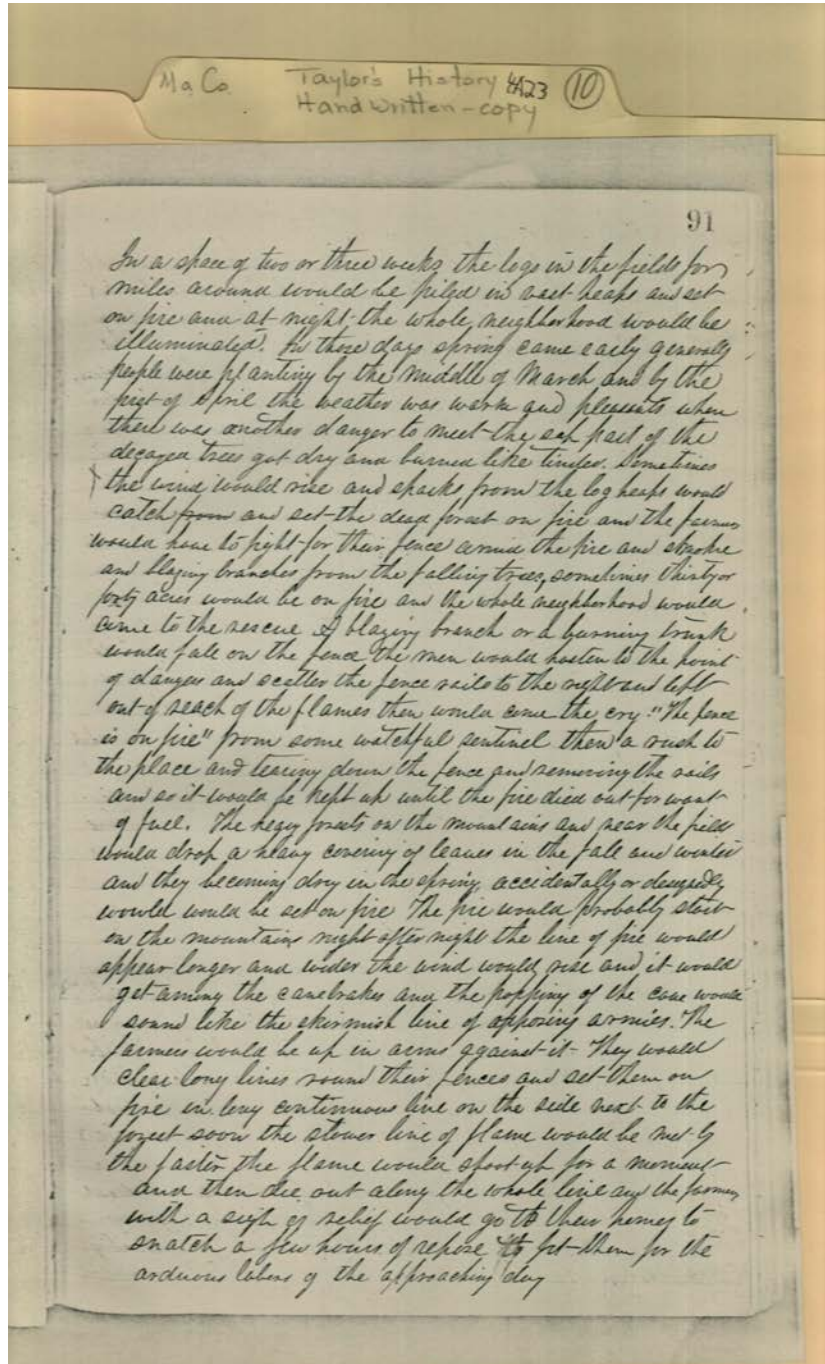 Ma Co. Taylor's History 4A23 10
Handwritten-copy
91
In a space of two or three weeks the logs in the fields for
miles around would be piled in vast heaps and set
on fire and at night the whole neighborhood would be
illuminated. In those days spring came early generally
people were planting by the middle of March and by the
first of April the weather was warm and pleasants when
there was another danger to meet the sap part of the
decayed trees got dry and burned like tinder. Sometimes
the wind would rise and sparks from the log heaps would
catch from and set the dead forest on fire and the farmers
would have to fight for their fence amid the fire and smoke
and blazing branches from the falling trees, sometimes thirty or
forty acres would be on fire and the whole neighborhood would
come to the rescue A blazing branch or a burning trunk
would fall on the fence the men would hasten to the point
of dangers and scatter the fence rails to the right and left
out of reach of the flames then would come the cry "The fence
is on fire" from some watchful sentinel then a rush to
the place and tearing down the fence and removing the rails
and so it would be kept up until the fire died out for want
of fuel. The forests on the mountains and near the field
would drop a heavy covering of leaves in the fall and winter
and they becoming dry in the spring accidentally or designedly
would would be set on fire The fire would probably start
on the mountains night after night the line of fire would
appear longer and wider the wind would rise and it would
get among the canebrakes and the popping of the cane would
sound like the skirmish line of opposing armies. The
farmers would be up in arms against it They would
clear long lines round their fences and set them on
fire in long continuous line on the side next to the
forest soon the slower line of flame would be met by
the faster the flame would shoot up for a moment
and then die out along the whole line and the farmers
with a sigh of relief would go to their homes to
snatch a few hours of repose to fit them for the
arduous labors of the approaching day